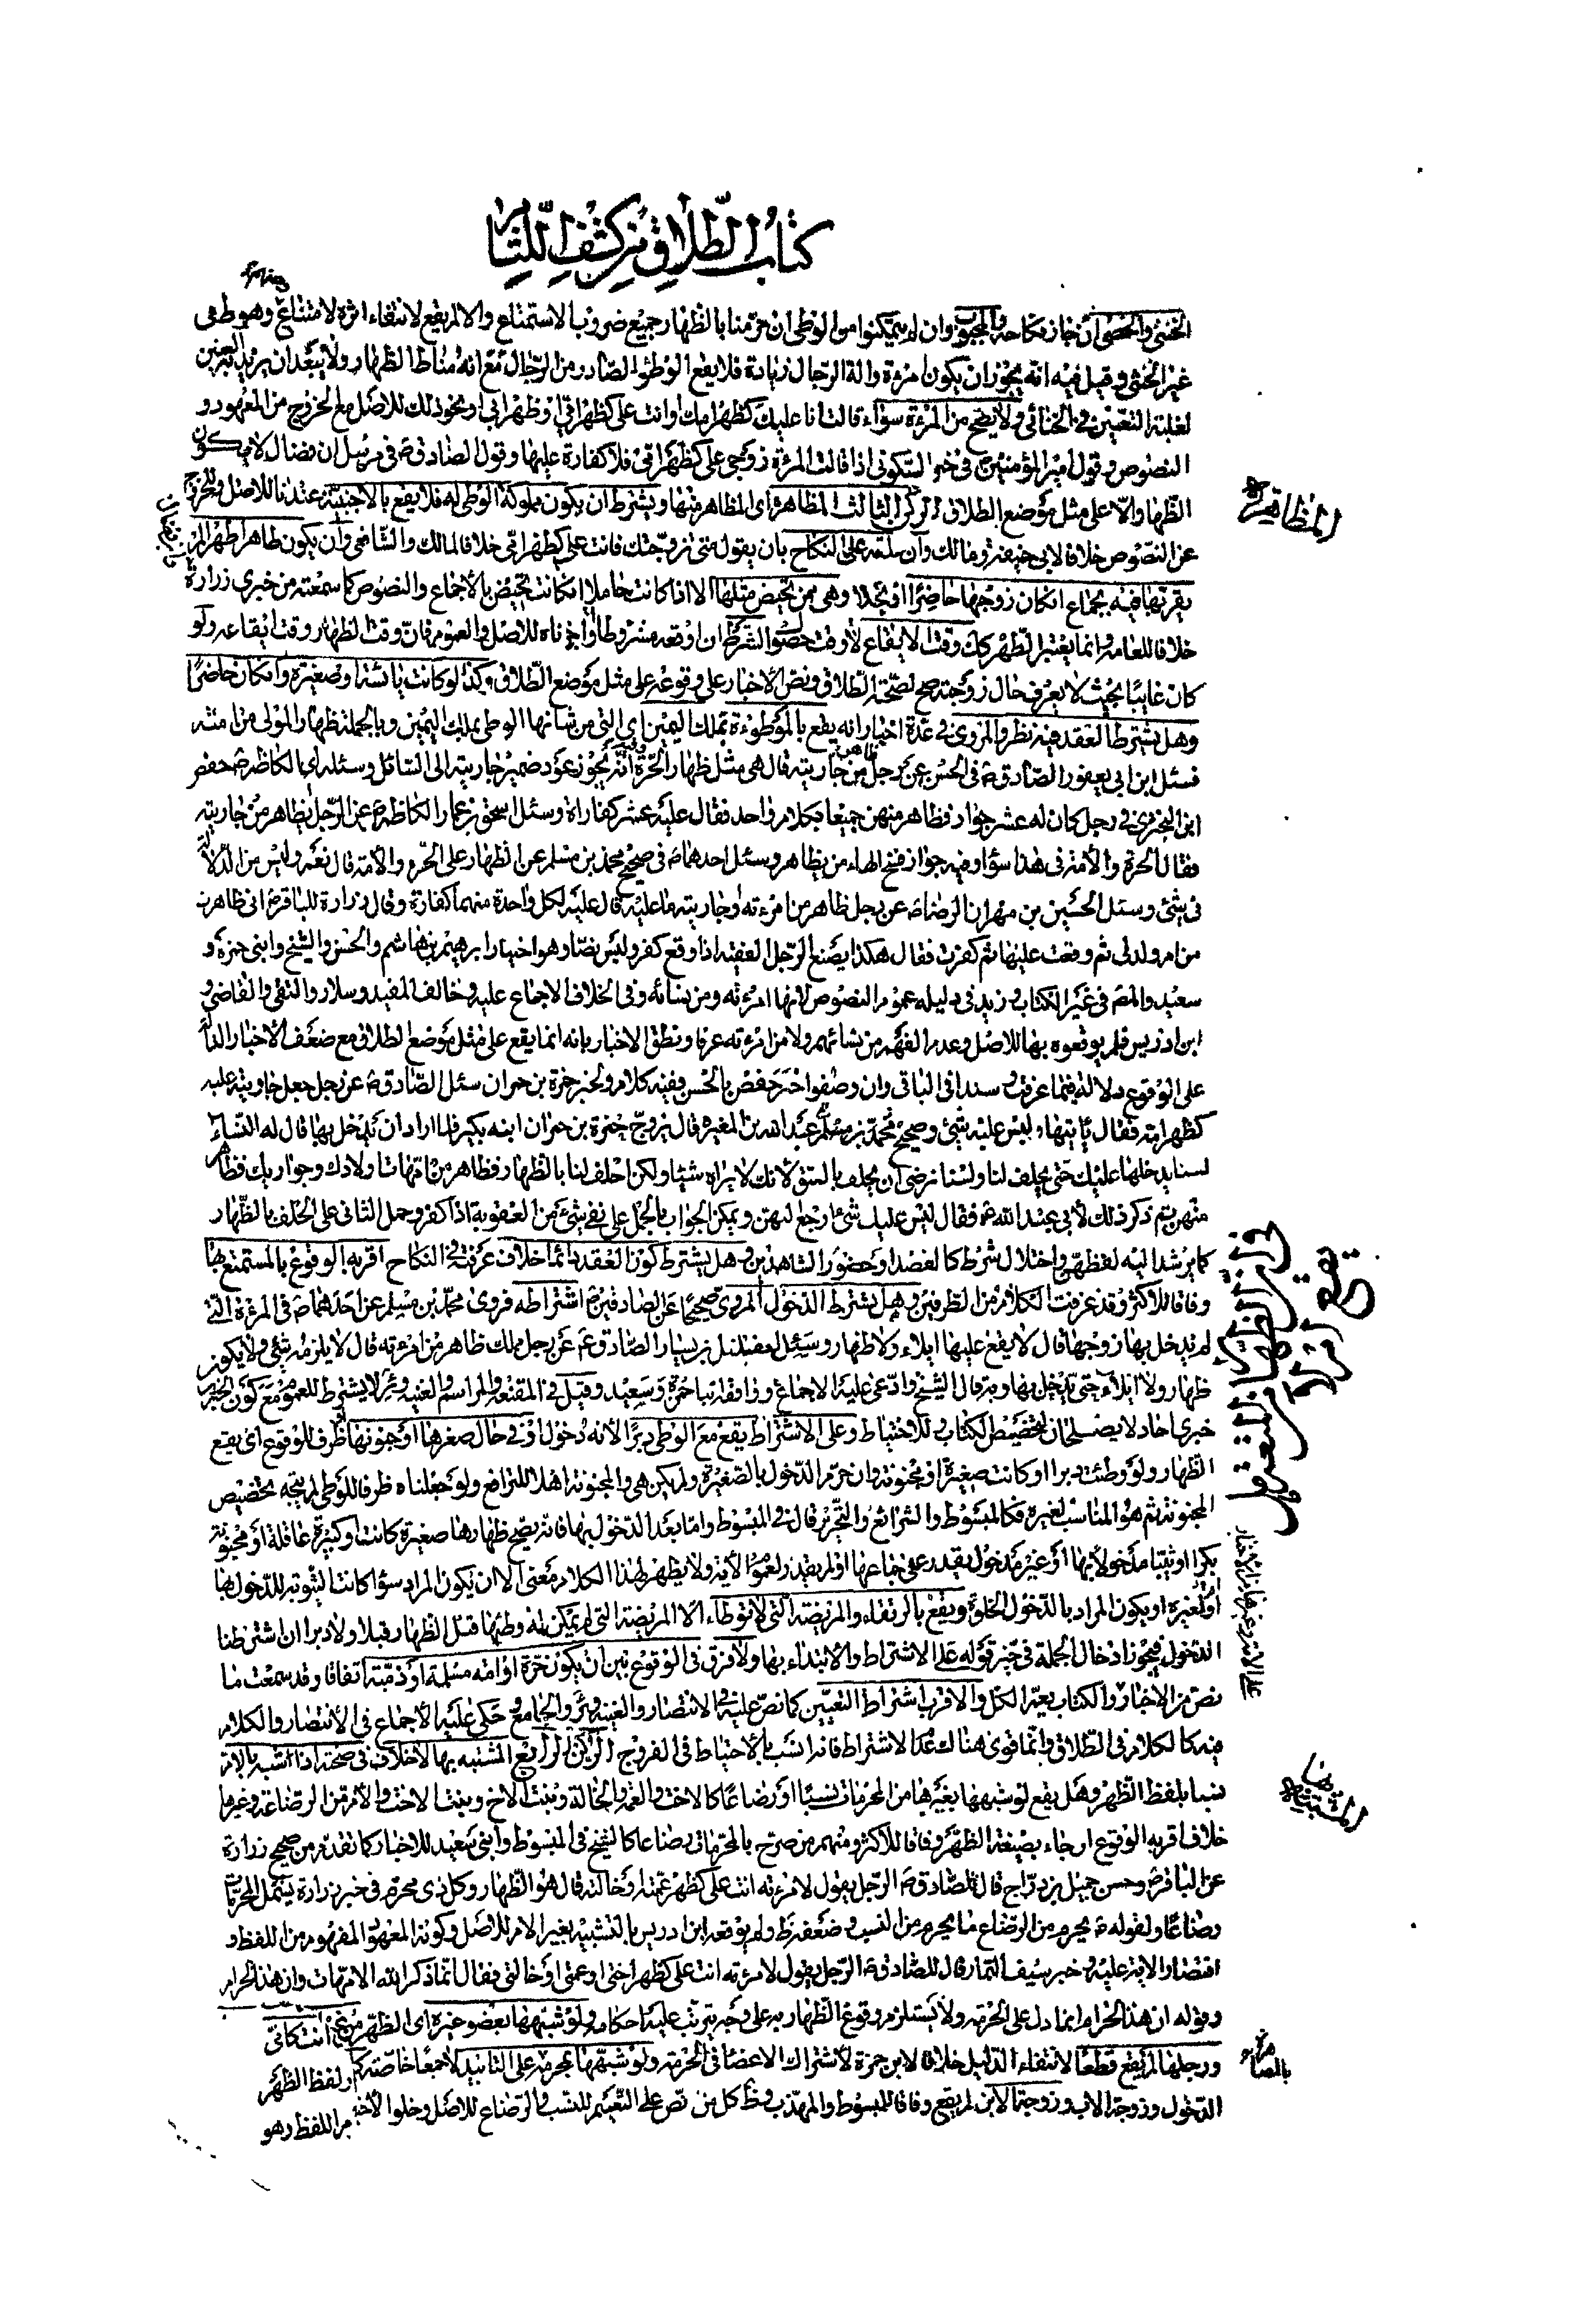 كتاب الطلاق من كشف اللثام
الخنثى والخصى ان جاز نكاحه والمجبوب وان لم يتمكنوا من الوطى ان حرمنا بالظهار جميع ضروب الاستمتاع والا لم يقع لانتفاء اثره لامتناع وهو ط فى
غير الخنثى وقيل فيه انه يجوز ان يكون امرءة والة الرجال زيادة فلا يقع الوطؤ الصادر من الرجال مع انه مناط الظهار ولا يبعد ان يريد به العنين
لغلبة التعيين فى الخناثى ولا يصح من المرءة سواء قالت انا عليك كظهر امك او انت على كظهر امى او ظهر ابى او نحو ذلك للاصل مع الخروج من المعهود و
النصوص وقول امير المؤمنين ع فى خبر السكونى اذا قالت المرءة زوجى على كظهر امى فلا كفارة عليها وقول الصادق ع فى مرسل ابن فضال لا يكون
الظهار الا على مثل موضع الطلاق الركن الثالث المظاهرة اى المظاهر منها ويشترط ان يكون مملوكة الوطى له فلا يقع بالاجنبية عندنا للاصل والخروج
عن النصوص خلافا لابى حنيفة ومالك وان علقه على النكاح بان يقول متى تزوجتك فانت على كظهر امى خلافا لمالك والشافعى وان يكون طاهرا طهرا لم
يقربها فيه بجماع ان كان زوجها حاضرا او بحكمه وهى ممن تحيض مثلها الا اذا كانت حاملا ان كانت تحيض بالاجماع والنصوص كما سمعته من خبرى زرارة
خلافا للعامة وانما يعتبر الطهر كك وقت الايقاع لا وقت حصول الشرط ان اوقعه مشروطا واجزناه للاصل والعموم فان وقت الظهار وقت ايقاعه ولو
كان غايبا بحيث لا يعرف حال زوجته صح لصحة الطلاق ونص الاخبار على وقوعه على مثل موضع الطلاق وكذا لو كانت يائسة او صغيرة وان كان حاضرا
وهل يشترط العقد فيه نظر والمروى فى عدة اخبار انه يقع بالموطوءة بملك اليمين اى التى من شانها الوطى بملك اليمين وبالجملة ظهار المولى من امته
فسئل ابن ابى يعفور الصادق ع فى الحسن عن رجل ظاهر من جاريته قال هى مثل ظهار الحرة وفيه انه يجوز عود ضمير جاريته الى السائل وسئل الكاظم ع حفص
ابن البخترى فى رجل كان له عشر جوار فظاهر منهن جميعا بكلام واحد فقال عليه عشر كفارات وسئل اسحق بن عمار الكاظم ع عن الرجل يظاهر من جاريته
فقال الحرة والامة فى هذا سواء وفيه جواز فتح الهاء من يظاهر وسئل احدهما ع فى صحيح محمد بن مسلم عن الظهار على الحرة والامة قال نعم وليس من الدلالة
فى شئ وسئل الحسين بن مهران الرضا ع عن رجل ظاهر من امرءته وجاريته ما عليه قال عليه لكل واحدة منهما كفارة وقال زرارة للباقر ع انى ظاهرت
من ام ولد لى ثم وقعت عليها ثم كفرت فقال هكذا يصنع الرجل الفقيه اذا وقع كفر وليس نصا وهو اختيار ابرهيم بن هاشم والحسن والشيخ وابنى حمزة و
سعيد والمص فى غير الكتاب وزيد فى دليله عموم النصوص لانها امرءته ومن نسائه وفى الخلاف الاجماع عليه وخالف المفيد وسلار والتقى والقاضى و
ابن ادريس فلم يوقعوه بها للاصل وعدم الفهم من نسائهم ولا من امرءته عرفا ونطق الاخبار بانه انما يقع على مثل موضع الطلاق مع ضعف الاخبار الدالة
على الوقوع دلالة فيما عرفت وسندا فى الباقى وان وصفوا خبر حفص بالحسن وفيه كلام ولخبر حمزة بن حمران سئل الصادق ع عن رجل جعل جاريته عليه
كظهر امه فقال ياتيها وليس عليه شئ وصحيح محمد بن مسلم عبد الله بن المغيرة قال تزوج حمزة بن حمران ابنة بكير فلما اراد ان يدخل بها قال له النساء
لسنا ندخلها عليك حتى يحلف لنا ولسنا نرضى ان يحلف بالعتق لانك لا تراه شيئا ولكن احلف لنا بالظهار فظاهر من امهات اولادك وجواريك فظاهر
منهن ثم ذكر ذلك لابى عبد الله ع فقال ليس عليك شئ ارجع اليهن ويمكن الجواب بالحمل على نفى شئ من العقوبة اذا كفر وحمل الثانى على الحلف بالظهار
كما يرشد اليه لفظه واختلال شرط كالقصد او حضور الشاهدين وهل يشترط كون العقد دائما خلاف عرفته فى النكاح اقربه الوقوع بالمستمتع بها
وفاقا للاكثر وقد عرفت الكلام من الطرفين وهل يشترط الدخول المروى صحيحا عن الصادقين ع اشتراطه فروى محمد بن مسلم عن احدهما ع فى المرءة التى
لم يدخل بها زوجها قال لا يقع عليها ايلاء ولا ظهار وسئل الفضيل بن يسار الصادق ع عن رجل مملك ظاهر من امرءته قال لا يلزمه شئ ولا يكون
ظهار ولا ايلاء حتى يدخل بها وبه قال الشيخ وادعى عليه الاجماع ووافقه ابنا حمزة وسعيد وقيل فى المقنعة والمراسم والغنية وئر لا يشترط للعموم مع كون الخبرين
خبرى احاد لا يصلحان لتخصيص الكتاب للاحتياط وعلى الاشتراط يقع مع الوطى دبرا لانه دخول او فى حال صغرها او جنونها ظرف للوقوع اى يقع
الظهار ولو وطئت دبرا او كانت صغيرة او مجنونة وان حرم الدخول بالصغيرة ولم يكن هى والمجنونة اهلا للترافع ولو جعلناه ظرفا للوطى لم يتجه تخصيص
المجنونة ثم هو المناسب لغيره فكالمبسوط والشرائع والتحرير قال فى المبسوط واما بعد الدخول بها فانه يصح ظهارها صغيرة كانت او كبيرة عاقلة او مجنونة
بكرا او ثيبا مدخولا بها او غير مدخول يقدر على جماعها او لم يقدر لعموم الاية ولا يظهر لهذا الكلام معنى الا ان يكون المراد سواء كانت الثيوبة للدخول بها
او لغيره او يكون المراد بالدخول الخلوة ويقع بالرتقاء والمريضة التى لا توطاء الا المريضة التى لم يتمكن منه وطيها قبل الظهار قبلا ولا دبرا ان اشترطنا
الدخول فيجوز ادخال الجملة فى حيز قوله على الاشتراط والابتداء بها ولا فرق فى الوقوع بين ان يكون حرة او امة مسلمة او ذمية اتفاقا وقد سمعت ما
نص من الاخبار والكتاب يعم الكل والاقرب اشتراط التعيين كما نص عليه فى الانتصار والغنية وئر والجامع وحكى عليه الاجماع فى الانتصار والكلام
فيه كالكلام فى الطلاق وانما قوى هناك عدم الاشتراط فانه انسب بالاحتياط فى الفروج الركن الرابع المشبه بها لا خلاف فى صحته اذا شبه بالام
نسبا بلفظ الظهر وهل يقع لو شبهها بغيرها من المحرمات نسبا او رضاعا كالاخت والعمة والخالة وبنت الاخ وبنت الاخت والام من الرضاعة وغيرها
خلاف اقربه الوقوع ان جاء بصيغة الظهر وفاقا للاكثر ومنهم من صرح بالمحرمات رضاعا كالشيخ فى المبسوط وابنى سعيد للاخبار كما تقدم من صحيح زرارة
عن الباقر ع وحسن جميل بن دراج قال للصادق ع الرجل يقول لامرءته انت على كظهر عمته او خالته قال هو الظهار وكل ذى محرم فى خبر زرارة يشمل المحرمات
رضاعا ولقوله ع يحرم من الرضاع ما يحرم من النسب وضعفه ظ ولم يوقعه ابن ادريس بالتشبيه بغير الام للاصل وكونه المعهود المفهوم من اللفظ و
اقتصار الاية عليه وخبر سيف التمار قال للصادق ع الرجل يقول لامرءته انت على كظهر اختى او عمتى او خالتى فقال انما ذكر الله الامهات وان هذا لحرام
وقوله ان هذا لحرام انما دل على الحرمة ولا يستلزم وقوع الظهار به على وجه يترتب عليه احكامه ولو شبهها بعضو غيره اى الظهر من انت كامى
ورجلها لم يقع قطعا لانتفاء الدليل خلافا لابن حمزة لاشتراك الاعضاء فى الحرمة ولو شبهها بمحرمة على التابيد لا جمعا خاصة كام ولفظ الظهر
الدخول وزوجة الاب وزوجة الابن لم يقع وفاقا للمبسوط والمهذب وظ كل من نص على التعميم للنسب والرضاع للاصل وخلو الاخبار من اللفظ وهو
المظاهرة
المشبه بها
بالصاهرة